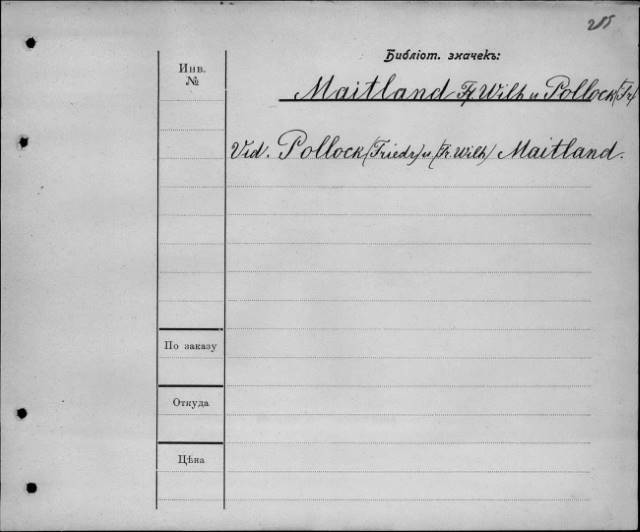 215
Библіот. значекъ:
Инв.
№
Maitland Fr Wilh u Pollock (Fr)
Vid. Pollock (Friedr) u (Fr. Wilh) Maitland.
По заказу
Откуда
Цѣна